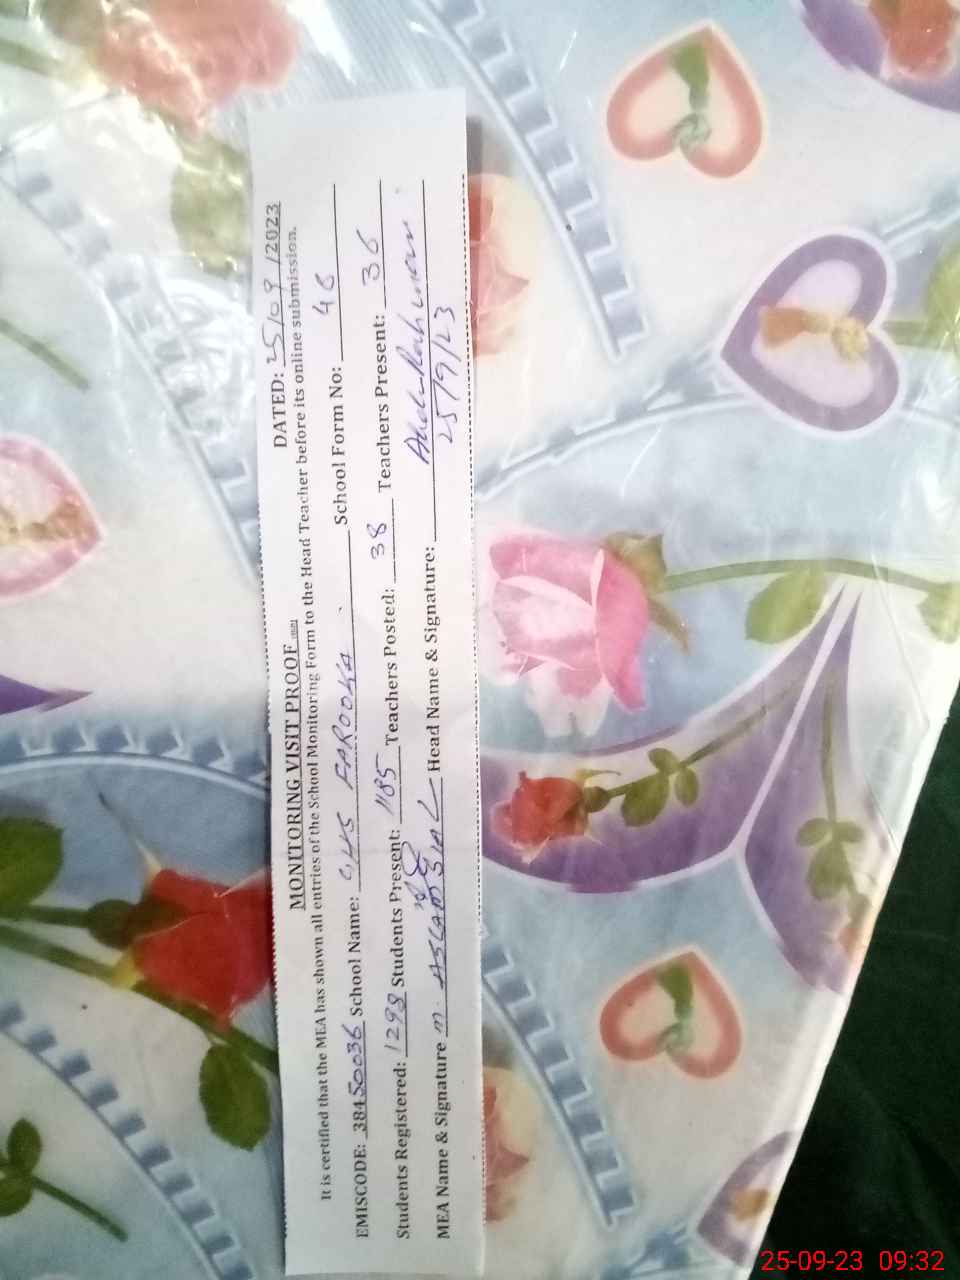 MONITORING VISIT PROOF DATED: 25/09/2023
It is certified that the MEA has shown all entries of the School Monitoring Form to the Head Teacher before its online submission.
EMISCODE: 38450036 School Name: GHS FAROOKA School Form No: 46
Students Registered: 1298 Students Present: 1185 Teachers Posted: 38 Teachers Present: 36
MEA Name & Signature M. Head Name & Signature: 
25/9/23
25-09-23 09:32